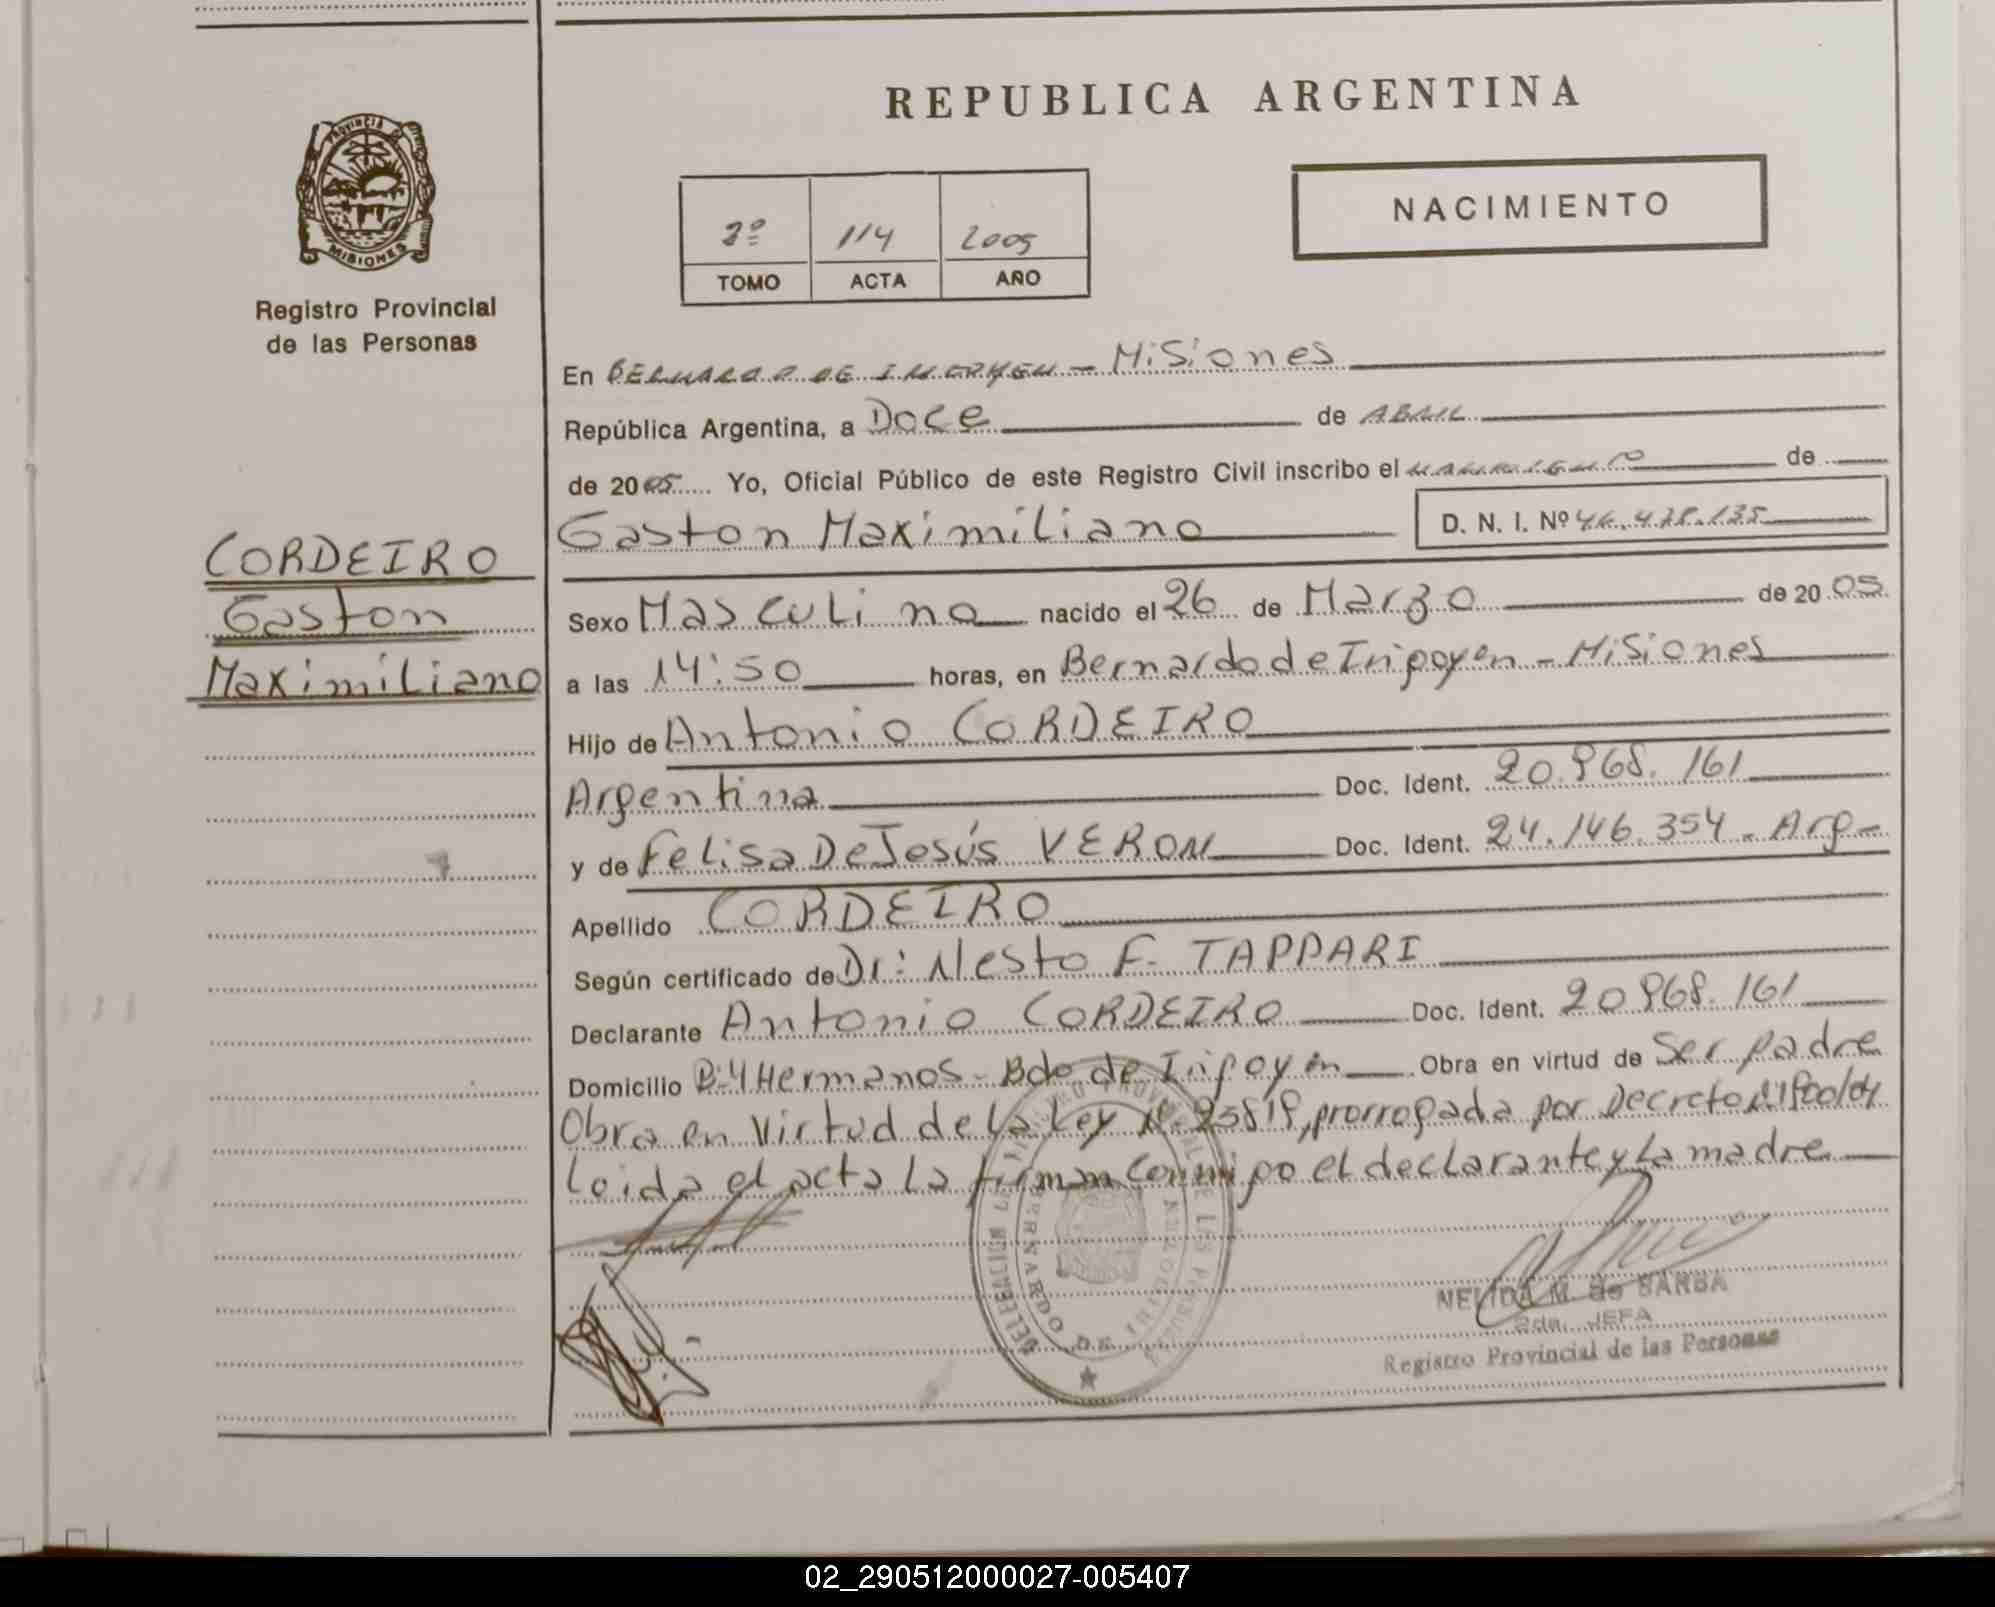 REPUBLICA ARGENTINA
PROVINCIA DE
MISIONES
Registro Provincial
de las Personas
NACIMIENTO
2º 114 2005
TOMO ACTA AÑO
En BERNARDO DE IRIGOYEN - Misiones
República Argentina, a Doce de ABRIL
de 2005 Yo, Oficial Público de este Registro Civil inscribo el NACIMIENTO de
Gaston Maximiliano D. N. I. Nº
CORDEIRO
Gaston
Maximiliano
Sexo Masculino nacido el 26 de Marzo de 2005
a las 14:50 horas, en Bernardo de Irigoyen - Misiones
Hijo de Antonio CORDEIRO
Argentina Doc. Ident. 20.968.161
y de Felisa De Jesús VERON Doc. Ident. 24.146.354 - Arg-
Apellido CORDEIRO
Según certificado de Dr: Nesto F. TAPPARI
Declarante Antonio CORDEIRO Doc. Ident. 20968.161
Domicilio Bº 4 Hermanos - Bdo de Irigoyen Obra en virtud de Ser padre
Obra en Virtud de la Ley Nº 25819, prorrogada por Decreto
Leida el acta La firman Conmigo el declarante y La madre
NELIDA M. de
2da. JEFA
Registro Provincial de las Personas
02_290512000027-005407